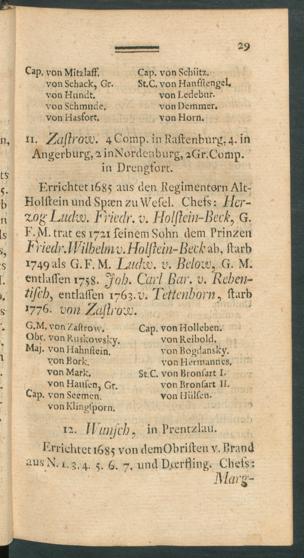 29
Cap. von Mitzlaff.
von Schack, Gr.
von Hundt.
von Schmude.
von Hasfort.
Cap. von Schütz.
St.C. von Hanffstengel.
von Ledebur.
von Demmer.
von Horn.
11. Zastrow. 4 Comp. in Rastenburg, 4. in
Angerburg, 2 in Nordenburg, 2 Gr. Comp.
in Drengfort.
Errichtet 1685 aus den Regimentorn Alt-
Holstein und Spæn zu Wesel. Chefs: Her-
zog Ludw. Friedr. v. Holstein-Beck, G.
F. M. trat es 1721 seinem Sohn dem Prinzen
Friedr. Wilhelm v. Holstein-Beck ab, starb
1749 als G. F. M. Ludw. v. Below, G. M.
entlassen 1758. Joh. Carl Bar. v. Reben-
tisch, entlassen 1763. v. Tettenborn, starb
1776. von Zastrow.
G.M. von Zastrow.
Obr. von Ruskowsky.
Maj. von Hahnstein.
von Bork.
von Mark.
von Hausen, Gr.
Cap. von Seemen.
von Klingsporn.
Cap. von Holleben.
von Reibold.
von Bogdansky.
von Hermannes.
St.C. von Bronsart I.
von Bronsart II.
von Hülsen.
12. Wunsch, in Prentzlau.
Errichtet 1685 von dem Obristen v. Brand
aus N. 1. 3. 4. 5. 6. 7. und Dœrfling. Chefs:
Marg-